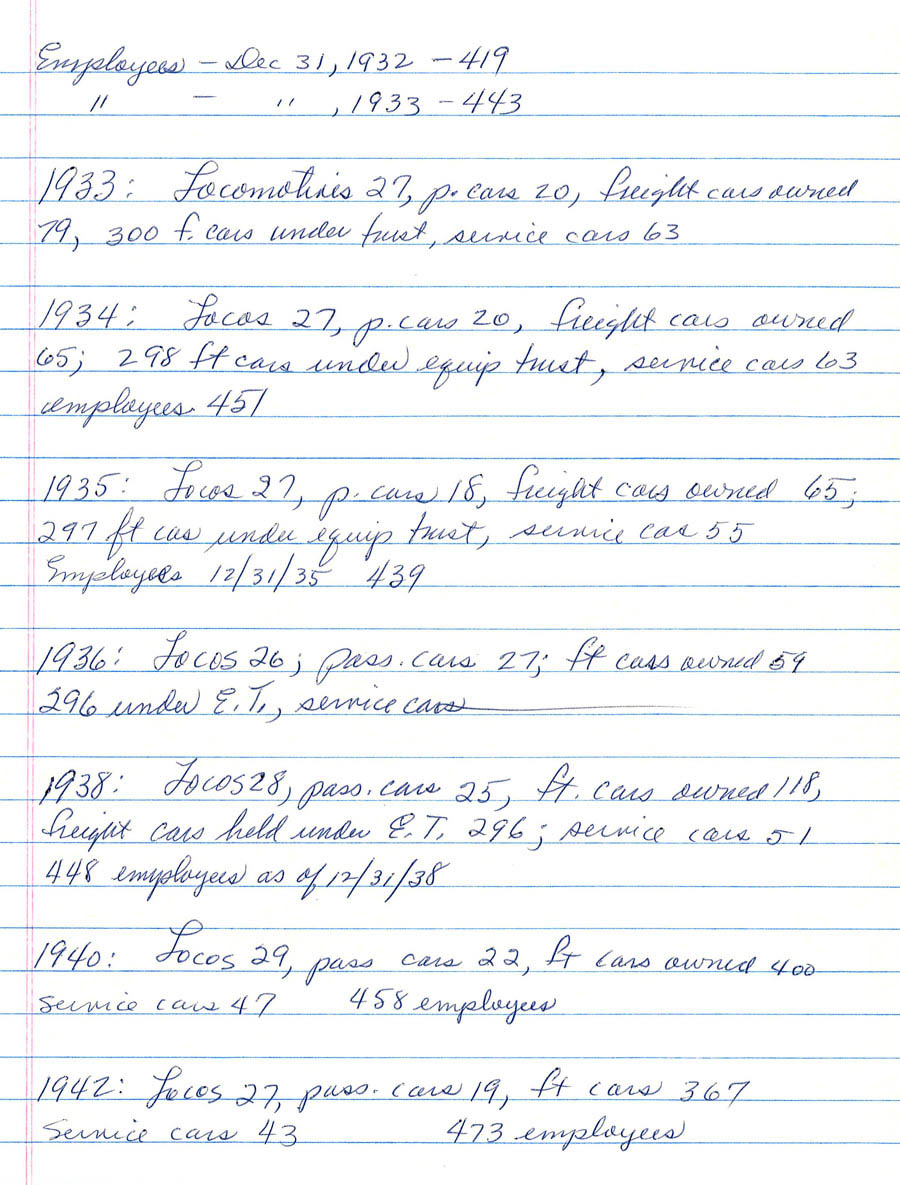 Employees - Dec 31, 1932 - 419
" - " , 1933 - 443
1933: Locomotives 27, p. cars 20, freight cars owned
79, 300 f. cars under trust, service cars 63
1934: Locos 27, p. cars 20, freight cars owned
65; 298 ft cars under equip trust, service cars 63
employees. 451
1935: Locos 27, p. cars 18, freight cars owned 65;
297 ft cas under equip trust, service cas 55
Employees 12/31/35 439
1936: Locos 26; pass. cars 27; ft cars owned 59
296 under E.T., service cars
1938: Locos 28, pass. cars 25, ft. cars owned 118,
freight cars held under E.T. 296; service cars 51
448 employees as of 12/31/38
1940: Locos 29, pass cars 22, ft cars owned 400
Service cars 47 458 employees
1942: Locos 27, pass. cars 19, ft cars 367
Service cars 43 473 employees